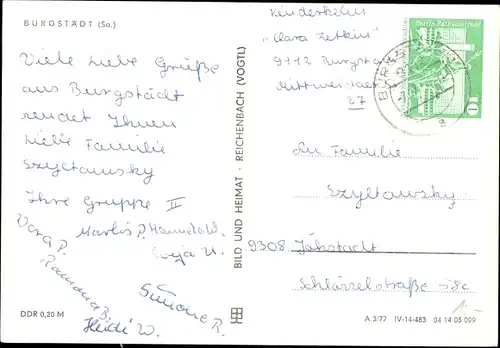 BURGSTÄDT (Sa.)
Viele liebe Grüße
aus Burgstädt
sendet Ihnen
liebe Familie
Szyltowsky
Ihre Gruppe II
Marlis P. Hannelore W.
Vera P.
Sveja U.
Ramona B.
Simone R.
Heidi W.
DDR 0,20 M
BILD UND HEIMAT · REICHENBACH (VOGTL)
Kinderheim
„Clara Zetkin"
9112 Burgstädt
Mittweidaer
27
Berlin, Rathausstraße
10
BURGSTÄDT
a
An Familie
Szyltowsky
9308 Jöhstadt
Schlösselstraße 58c
A 3/77 IV-14-483 04 14 05 099